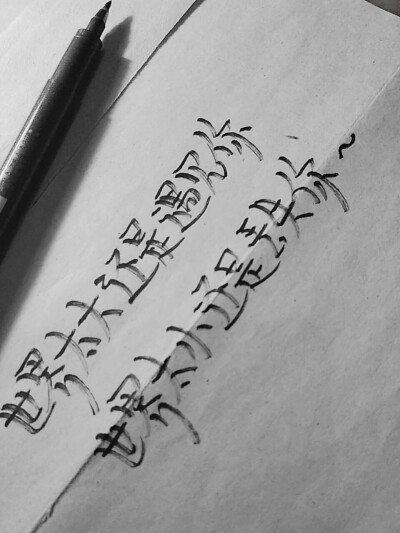 世界太大还是遇见你
世界太小还是丢失你~